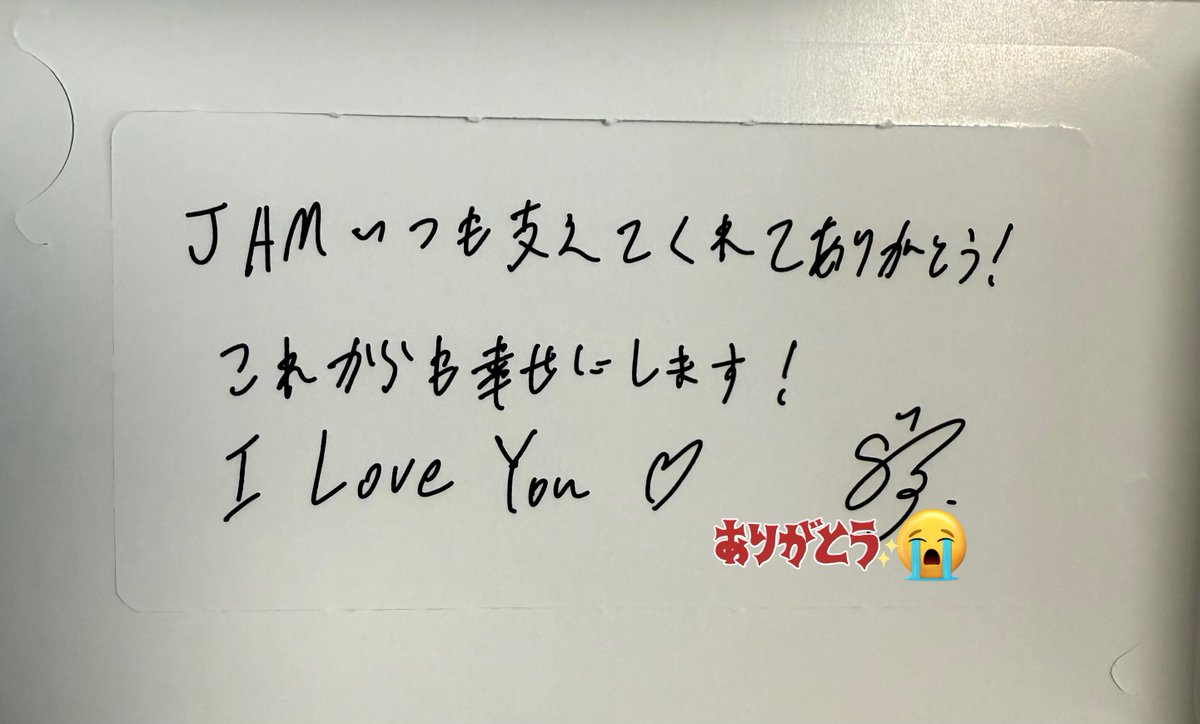 JAMいつも支えてくれてありがとう!
これからも幸せにします!
I Love You ♡
ありがとう✨😭